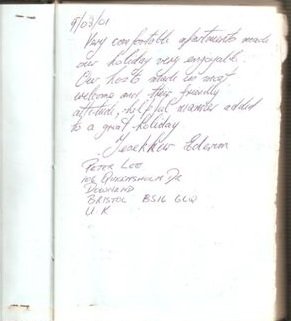 9/03/01
Very comfortable apartments made
our holiday very enjoyable.
Our hosts made us most
welcome and their friendly
attitude, helpful manner added
to a great holiday
PETER LOO
DOWNEND
BRISTOL BS16 6LQ
U.K